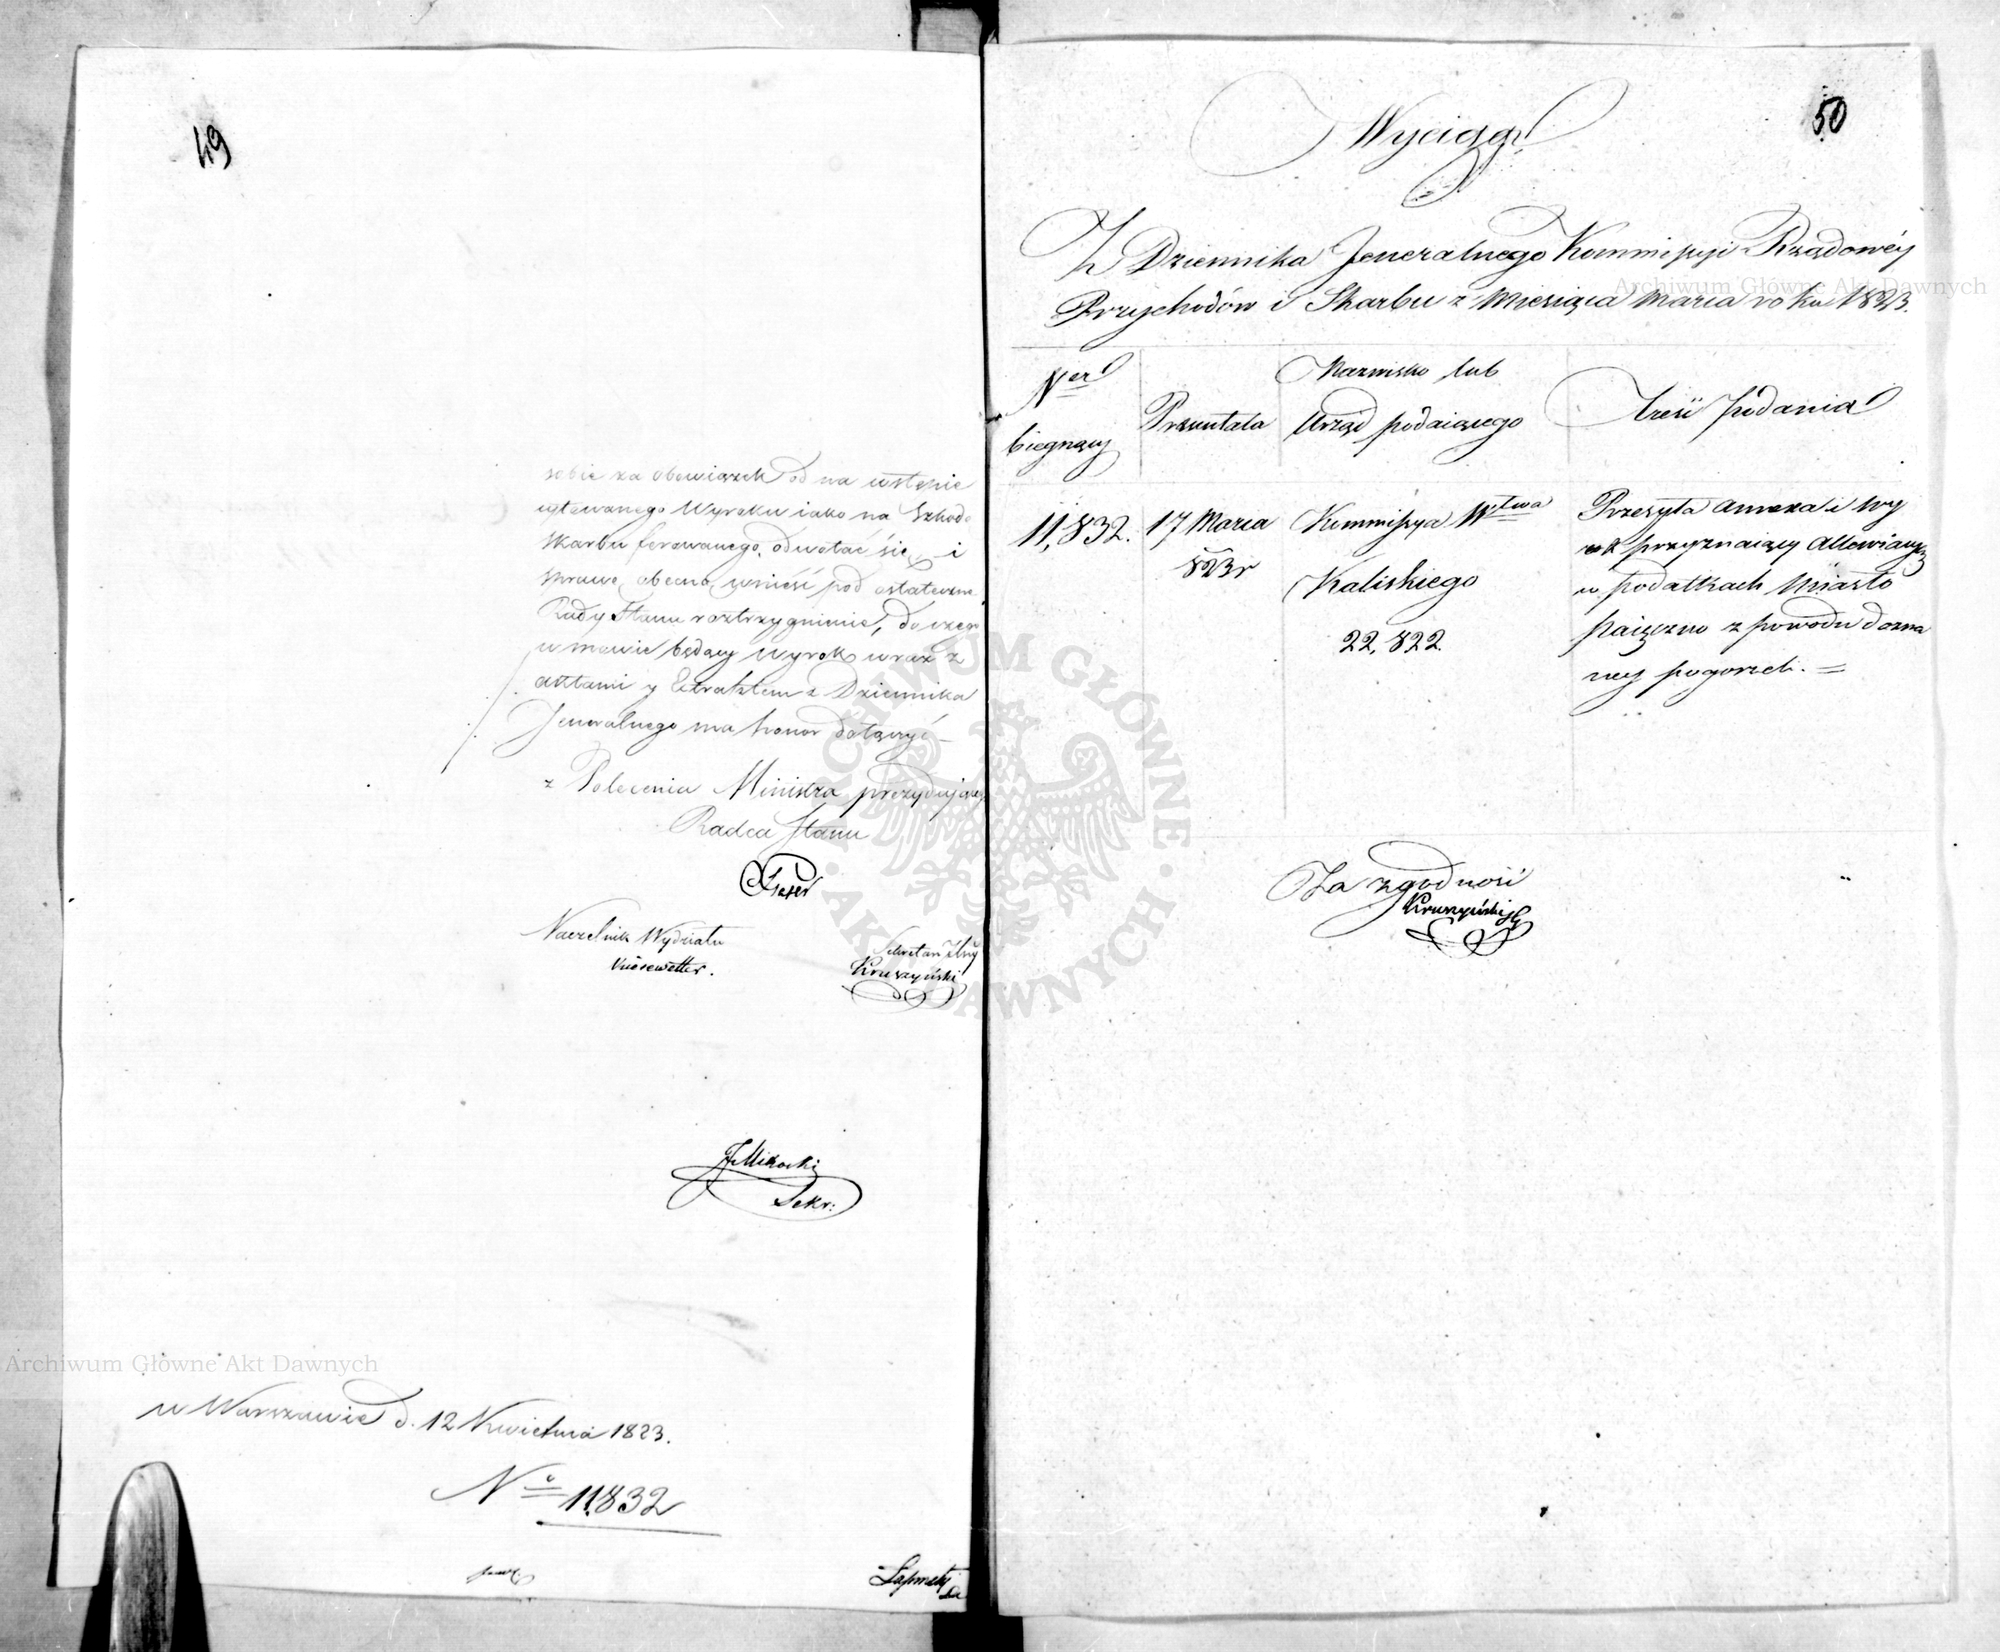 49
sobie za obowiązek od na wstępie
cytowanego Wyroku iako na Szkodę
Skarbu ferowanego, odwołać się, i
sprawę obecną wnieść pod ostateczne
Rady Stanu roztrzygnienie, do czego
w mowie będący Wyrok wraz z
aktami y Extraktem z Dziennika
Jeneralnego ma honor dołączyć
z Polecenia Ministra prezydującego
Radca Stanu
Naczelnik Wydziału
Kiesewetter.
Sekretarz Jlny
Kruszyński
JMikocki
Sekr:
w Warszawie d. 12 Kwietnia 1823.
No 11,832
50
Wyciąg
Z Dziennika Jeneralnego Kommissyi Rządowéy
Przychodów i Skarbu z Miesiąca Marca roku 1823.
Ner biegnący
Prezentata
Nazwisko lub Urząd podaiącego
Treść podania
11,832.
17 Marca
823r
Kommissya Wztwa
Kaliskiego
22,822.
Przesyła annexa i Wy
rok przyznaiący Allewiacyą
w podatkach Miasto
Paięczno z powodu dozna
ney pogorzeli. =
Za zgodność
Kruszyński
Archiwum Główne Akt Dawnych
Archiwum Główne Akt Dawnych
ARCHIWUM GŁÓWNE · AKT DAWNYCH ·